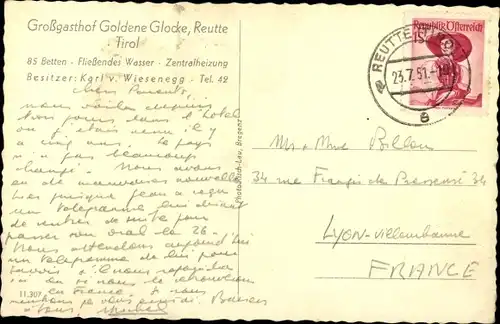 Großgasthof Goldene Glocke, Reutte
Tirol
85 Betten - Fließendes Wasser - Zentralheizung
Besitzer: Karl v. Wiesenegg - Tel. 42
Chers Parents,
nous voilà depuis
trois jours dans l'hôtel
où j'étais venu il y
a cinq ans. Le pays
n'a pas beaucoup
changé. Nous avons
eu de mauvaises nouvelles
puisque Jean a reçu
un télégramme lui disant
de rentrer de suite pour
passer son oral le 26-
Nous attendons aujourd'hui
un télégramme de lui pour
savoir s'il nous
ou si nous le
en France. Si nous
Baisers
à tous
11.307
Republik Österreich
REUTTE
23.7.51
a
Mr & Mme Billon
34 rue Francis de Pressensé 34
Lyon-Villeurbanne
FRANCE